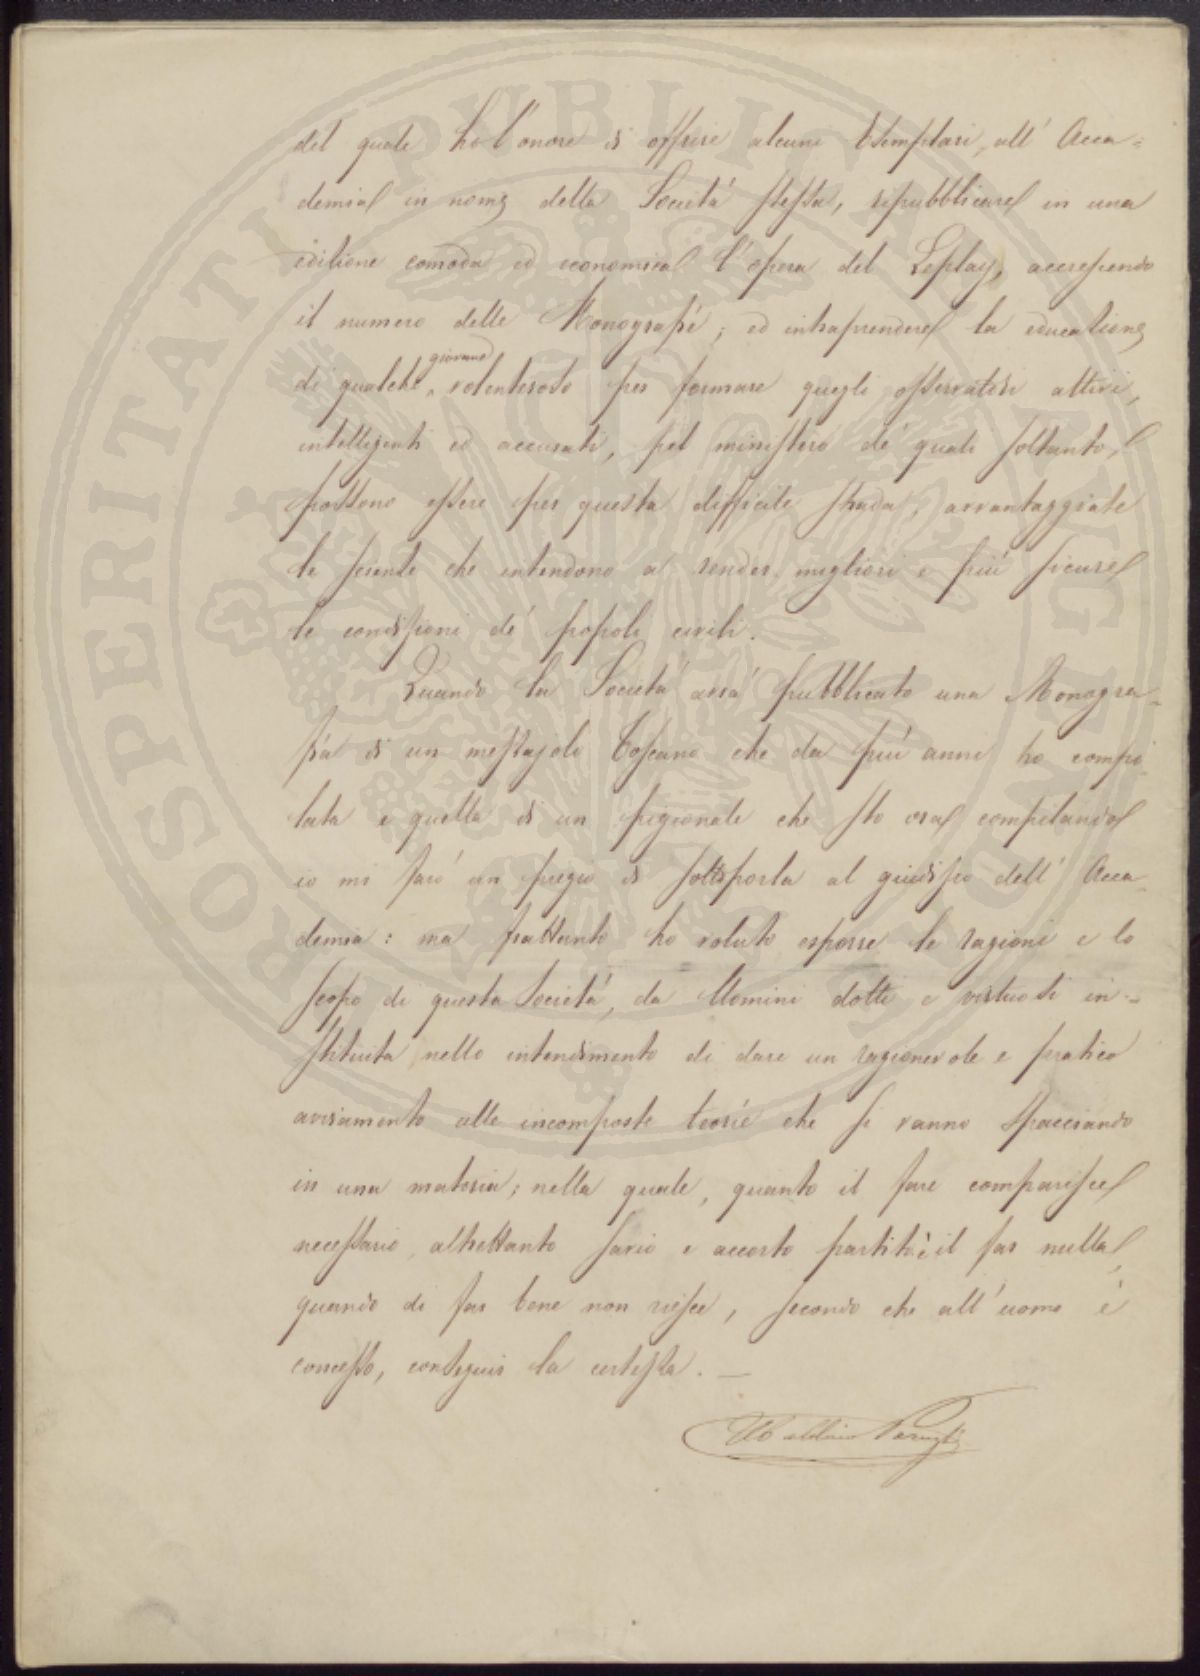 del quale ho l'onore di offrire alcuni Esemplari, all' Acca=
demia in nome della Società stessa, ripubblicare in una
edizione comoda ed economica l'opera del Leplay, accrescendo
il numero delle Monografie; ed intraprendere la educazione
di qualche giovane volenteroso per formare quegli osservatori attivi,
intelligenti ed accurati, pel ministero de' quali soltanto,
possono essere per questa difficile strada, avvantaggiate
le scienze che intendono a render migliori e più sicure
le condizioni de' popoli civili.
Quando la Società avrà pubblicato una Monogra-
fia di un mezzajolo Toscano che da più anni ho compi-
lata e quella di un pigionale che sto ora compilando
io mi farò un pregio di sottoporla al giudizio dell' Acca-
demia: ma frattanto ho voluto esporre le ragioni e lo
scopo di questa Società, da Uomini dotti e virtuosi in-
stituita nello intendimento di dare un ragionevole e pratico
avviamento alle incomposte teorie che si vanno spacciando
in una materia; nella quale, quanto il fare comparisce
necessario, altrettanto savio e accorto partito è il far nulla,
quando di far bene non riesce, secondo che all' uomo è
concesso, conseguir la certezza. —
Ubaldino Peruzzi
PROSPERITATI PUBLICAE AUGENDAE